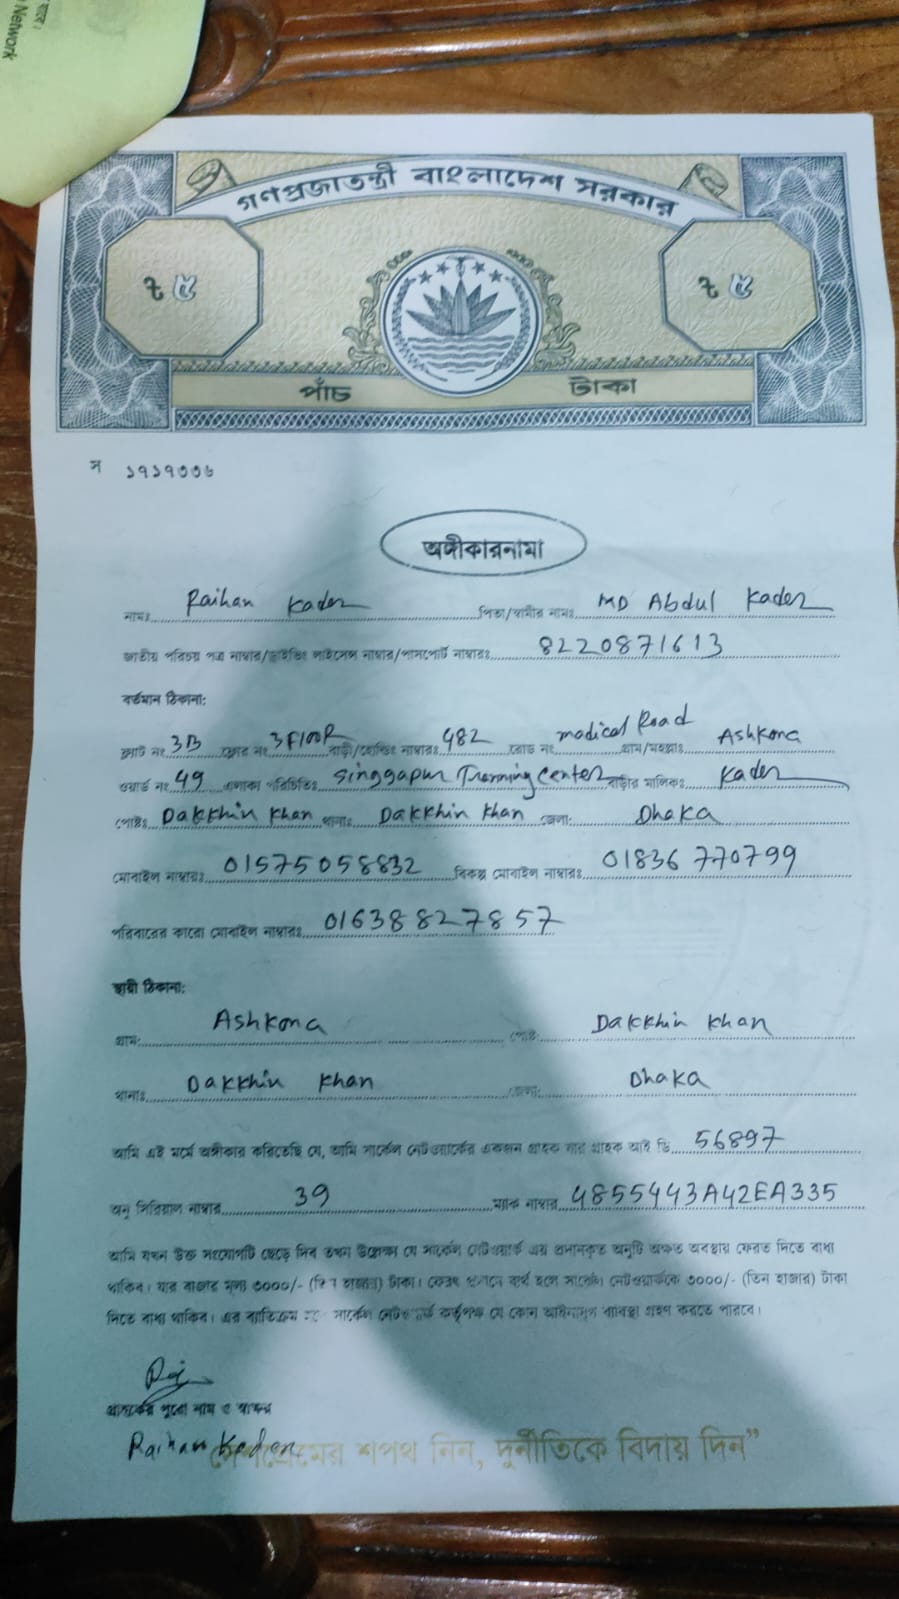 Network
গণপ্রজাতন্ত্রী বাংলাদেশ সরকার
৳ ৫ ৳ ৫
পাঁচ টাকা
স ১৭১৭৩৩৬
অঙ্গীকারনামা
নামঃ Raihan Kader পিতা/স্বামীর নামঃ MD Abdul Kader
জাতীয় পরিচয় পত্র নাম্বার/ড্রাইভিং লাইসেন্স নাম্বার/পাসপোর্ট নাম্বারঃ 8220871613
বর্তমান ঠিকানা:
ফ্লাট নং 3B ফ্লোর নং 3FlooR বাড়ী/হোল্ডিং নাম্বারঃ 482 রোড নং madical Road গ্রাম/মহল্লাঃ Ashkona
ওয়ার্ড নং 49 এলাকা পরিচিতিঃ Singgapur Tranning Center বাড়ীর মালিকঃ Kader
পোষ্টঃ Dakkhin Khan থানাঃ Dakkhin Khan জেলা: Dhaka
মোবাইল নাম্বারঃ 01575058832 বিকল্প মোবাইল নাম্বারঃ 01836770799
পরিবারের কারো মোবাইল নাম্বারঃ 01638827857
স্থায়ী ঠিকানা:
গ্রাম: Ashkona পোষ্ট: Dakkhin Khan
থানাঃ Dakkhin Khan জেলা: Dhaka
আমি এই মর্মে অঙ্গীকার করিতেছি যে, আমি সার্কেল নেটওয়ার্কের একজন গ্রাহক যার গ্রাহক আই ডি 56897
অনু সিরিয়াল নাম্বার 39 ম্যাক নাম্বার 4855443A42EA335
আমি যখন উক্ত সংযোগটি ছেড়ে দিব তখন উল্লেক্ষ্য যে সার্কেল নেটওয়ার্ক এর প্রদানকৃত অনুটি অক্ষত অবস্থায় ফেরত দিতে বাধ্য
থাকিব। যার বাজার মূল্য ৩০০০/- (তিন হাজার) টাকা। ফেরৎ প্রদানে ব্যর্থ হলে সার্কেল নেটওয়ার্ককে ৩০০০/- (তিন হাজার) টাকা
দিতে বাধ্য থাকিব। এর ব্যতিক্রম হলে সার্কেল নেটওয়ার্ক কর্তৃপক্ষ যে কোন আইনানুগ ব্যবস্থা গ্রহণ করতে পারবে।
গ্রাহকের পুরো নাম ও স্বাক্ষর
Raihan Kader
দেশপ্রেমের শপথ নিন, দুর্নীতিকে বিদায় দিন"